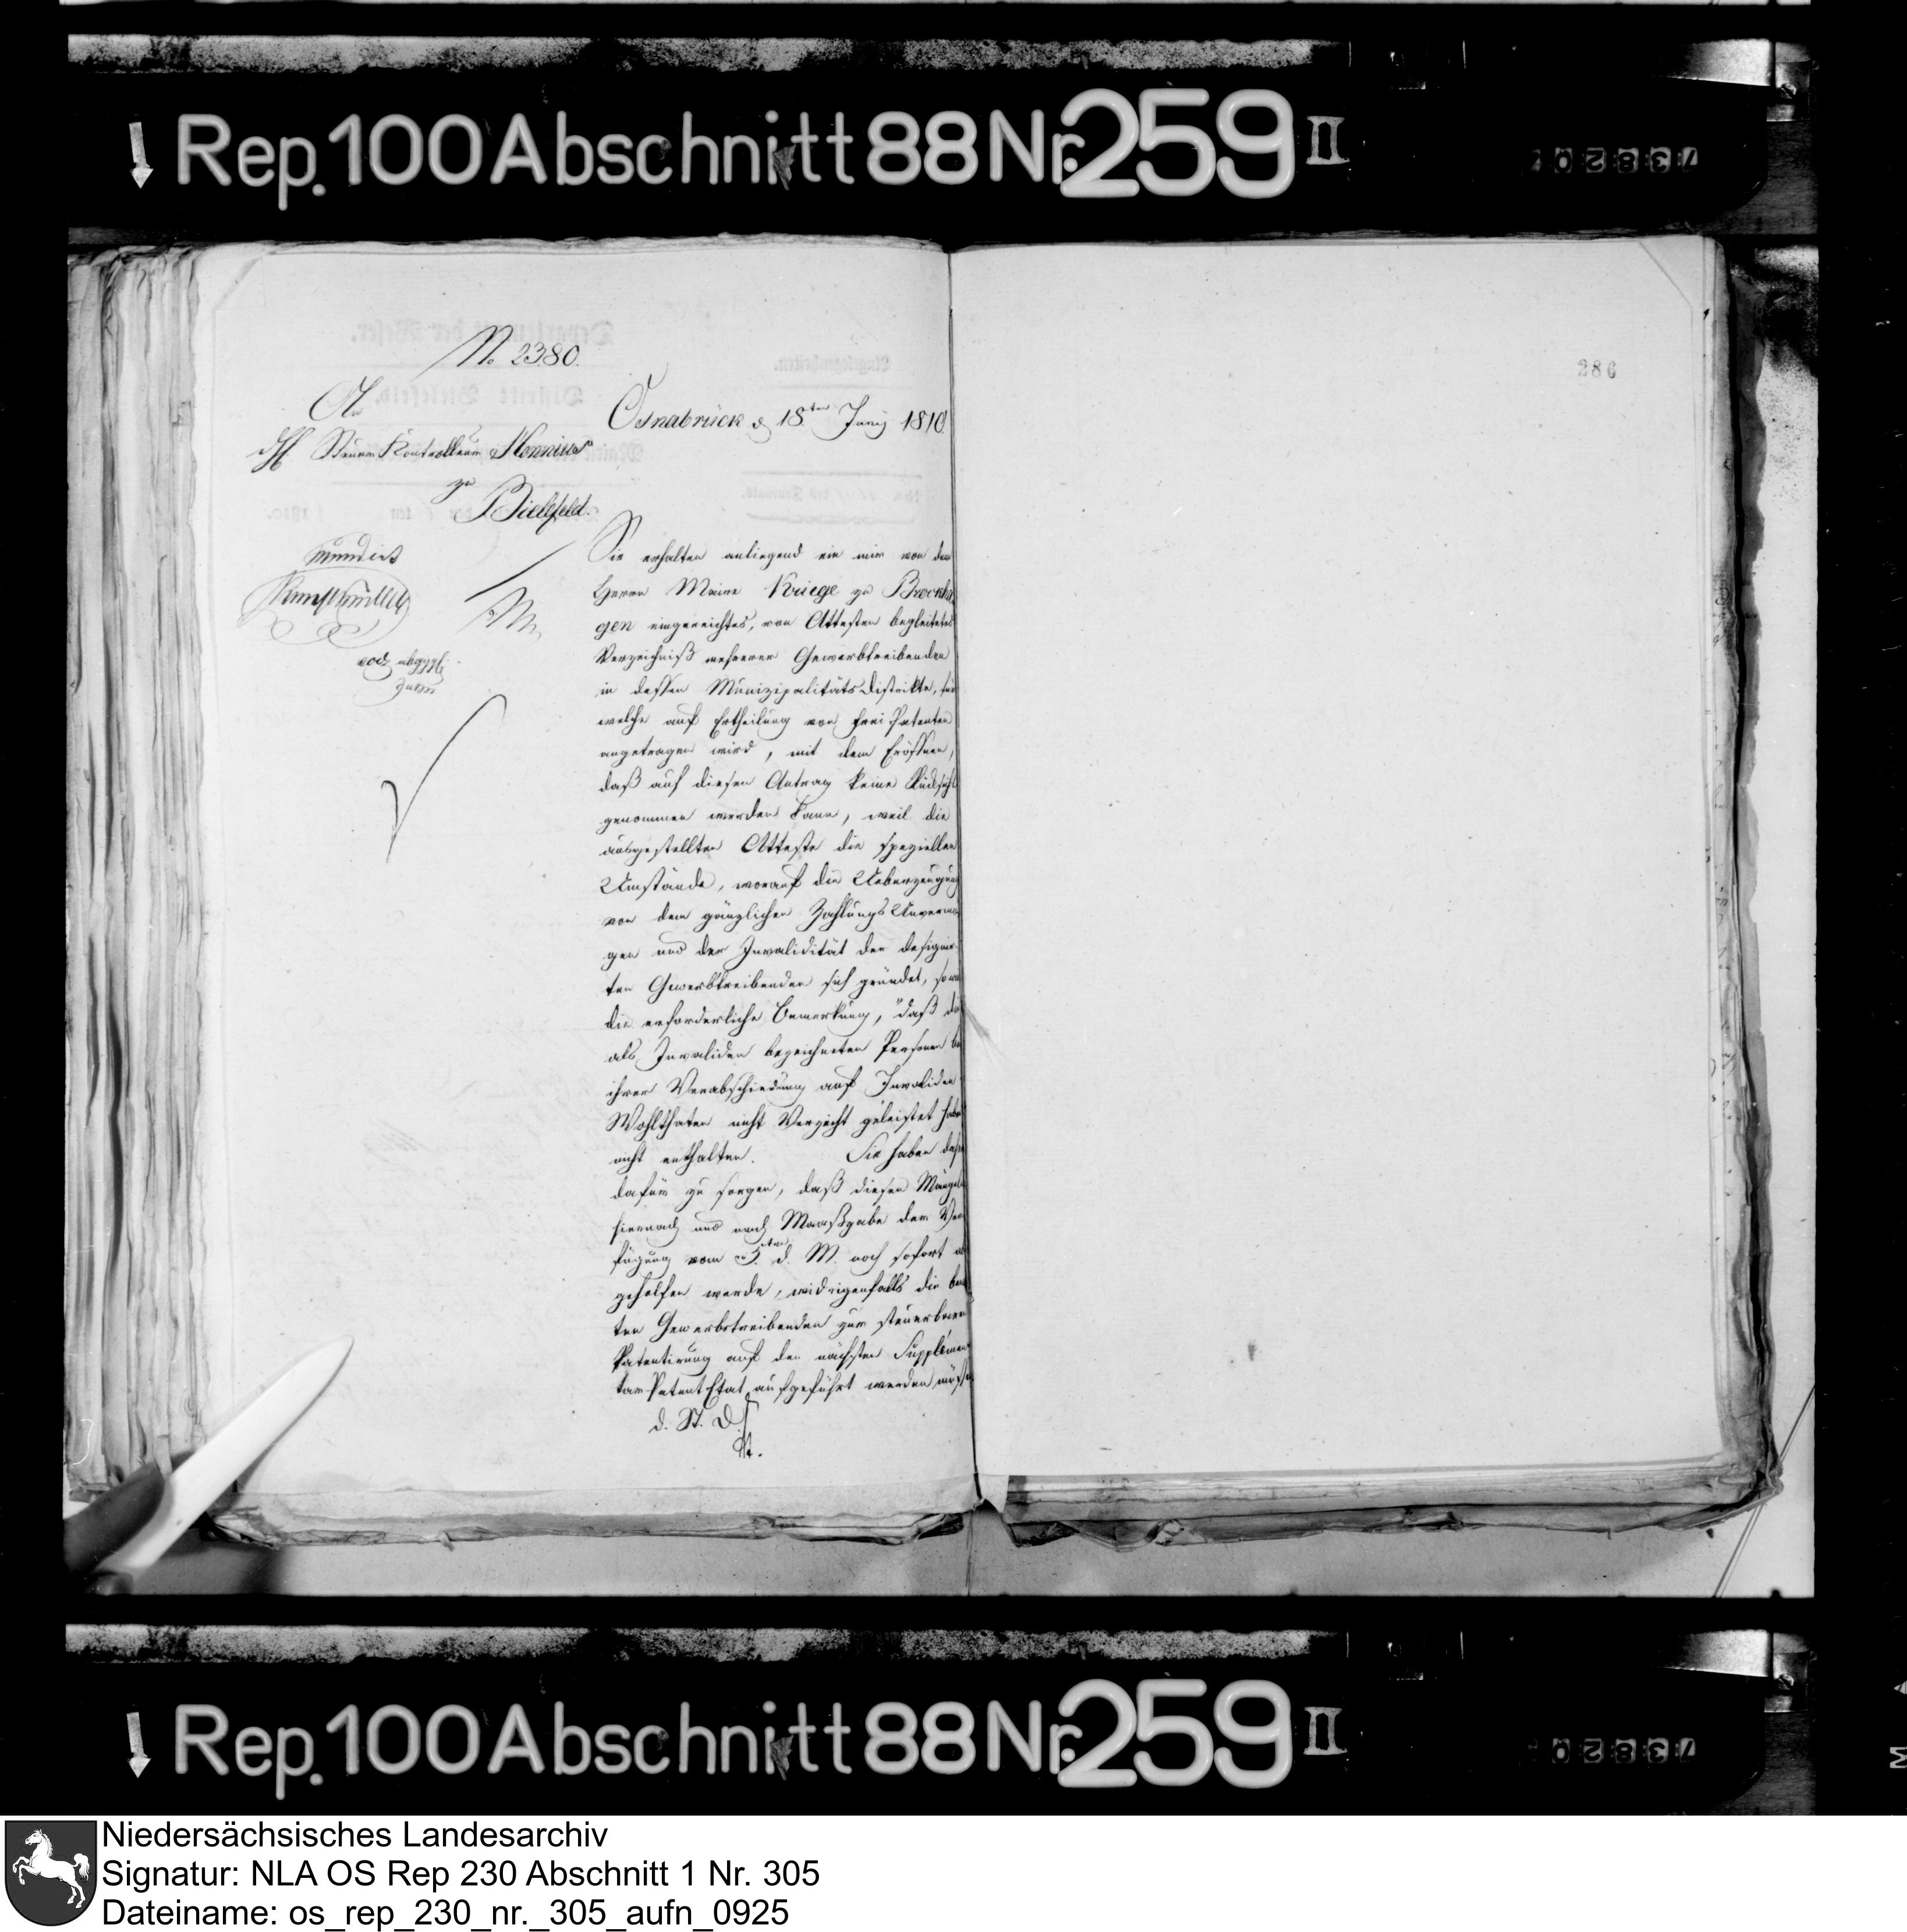 Rep. 100 Abschnitt 88 Nr. 259 II
73820
286
No 2380.
An
Steuer Kontrolleur
zu
Bielefeld.
mundirt
Osnabrück d 18ten Juny 1810.
Sie erhalten anliegend ein mir von dem
Herrn Maire Kriege zu Brockha
gen eingereichtes, von Attesten begleitetes
Verzeichniß mehrerer Gewerbtreibenden
in dessen Munizipalitäts Distrikte, für
welche auf Ertheilung von frei Patenten
angetragen wird, mit dem Eröffnen,
daß auf diesen Antrag keine Rücksicht
genommen werden kann, weil die
ausgestellten Atteste die speziellen
Umstände, worauf die Ueberzeugung
von dem gänzlichen Zahlungs Unvermö
gen und der Invalidität der designir-
ten Gewerbtreibenden sich gründet, sowie
die erforderliche Bemerkung, "daß die
als Invaliden bezeichneten Personen bei
ihrer Verabschiedung auf Invaliden
Wohlthaten nicht Verzicht geleistet haben
nicht enthalten. Sie haben daher
dafür zu sorgen, daß diesen Mängeln
hiernach und nach Maaßgabe der Ver
fügung vom 5ten d. M. noch sofort ab
geholfen werde, widrigenfalls die
ten Gewerbstreibenden zur steuerbaren
Patentirung auf den nächsten Supplemen
tar-Patent Etat aufgeführt werden müssen
d. St. D.
Rep. 100 Abschnitt 88 Nr. 259 II
73820
Niedersächsisches Landesarchiv
Signatur: NLA OS Rep 230 Abschnitt 1 Nr. 305
Dateiname: os_rep_230_nr._305_aufn_0925